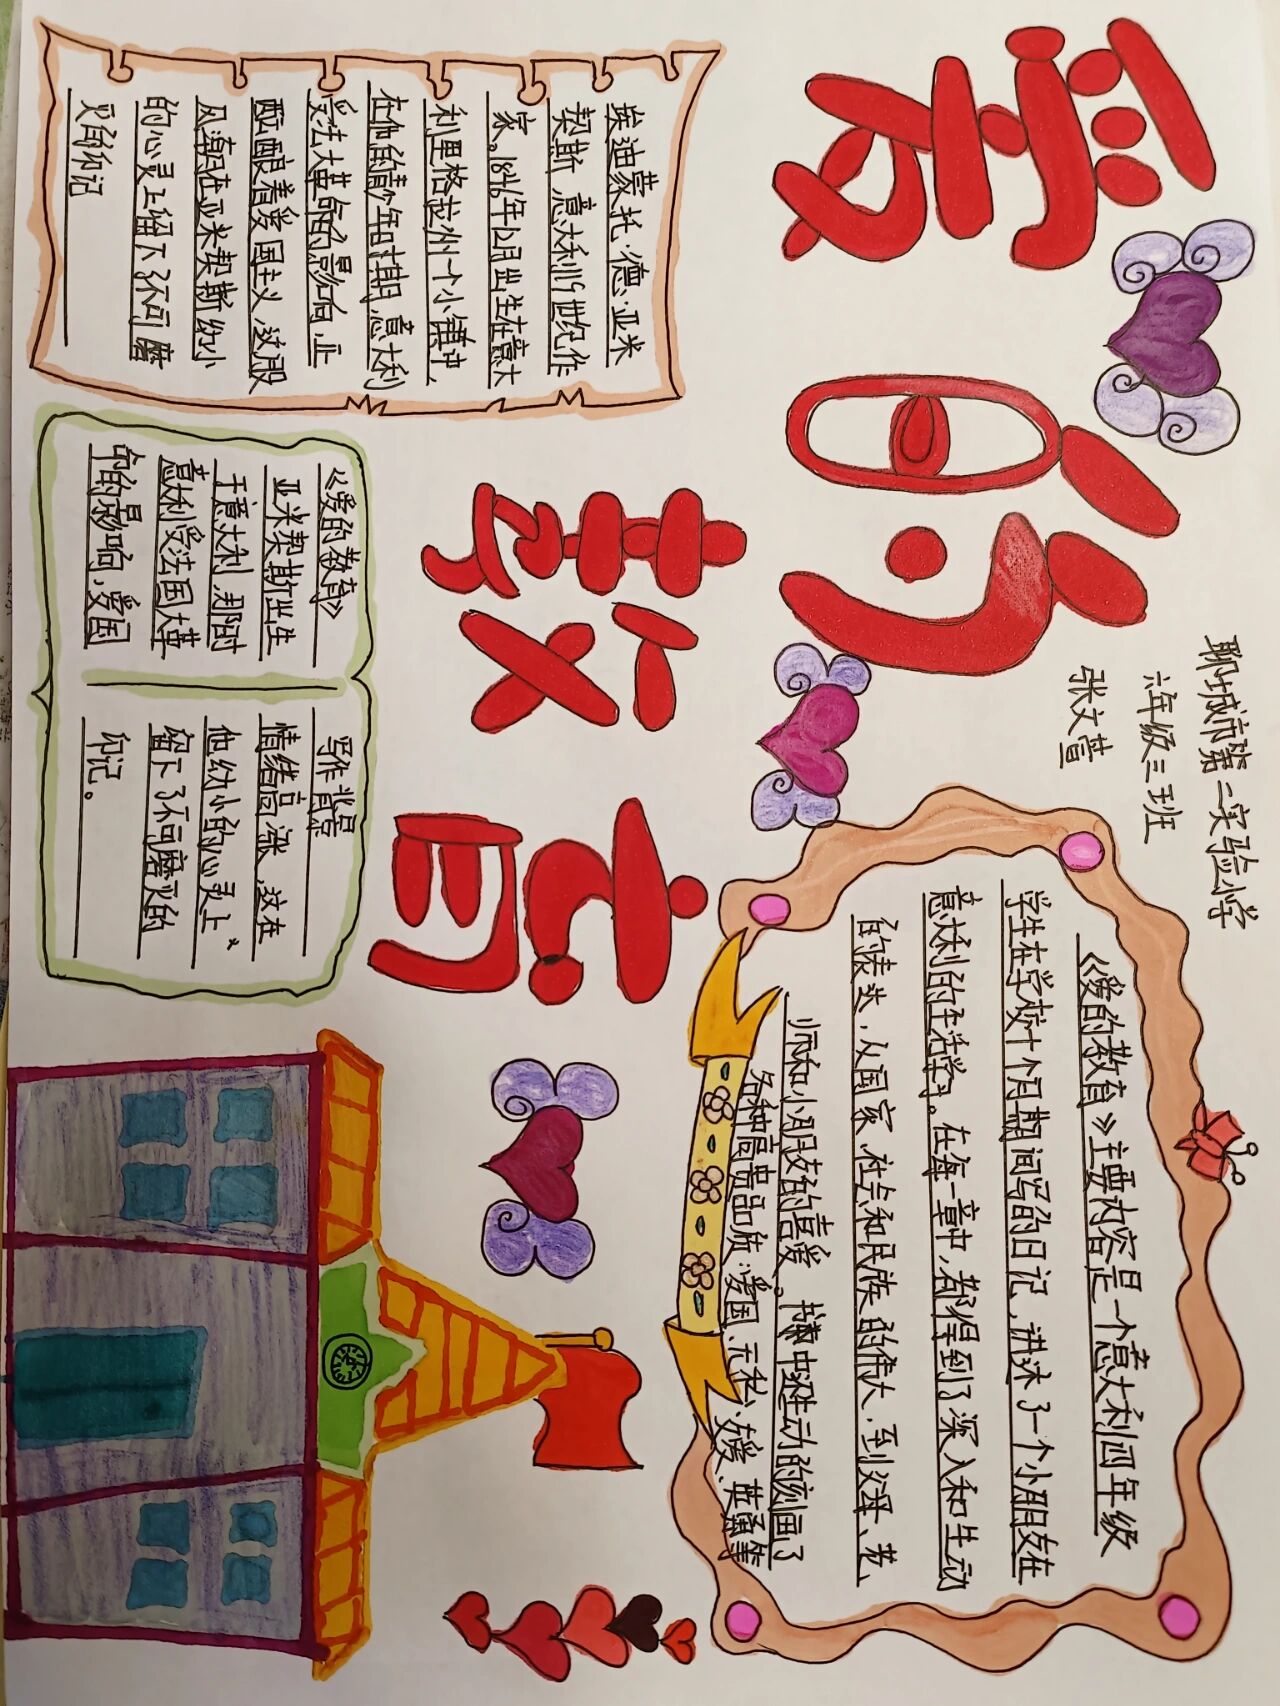 爱的
教育
聊城市第二实验小学
六年级三班
张文萱
《爱的教育》主要内容是一个意大利四年级
学生在学校十个月期间写的日记，讲述了一个小朋友在
意大利的生活学习。在每一章中，都得到了深入和生动
的侍头，从国家、社会和民族的伟大，到父母、老、
师和小朋友好的喜爱。书中逐生动的刻画了
各种高贵品质：爱国、无私、友爱、英勇等
埃迪蒙托·德·亚米
契斯，意大利19世纪作
家。1846年12月出生在意大
利里格拉州一个小镇中，
在他的情少年时期，意大利
受法大革命的影响，正
酝酿着爱国主义，这股
风潮在亚米契斯幼小
的心灵上留下了不可磨
灭的印记
《爱的教育》
亚米契斯出生
于意大利，那时
意利受法国大革
命的影响，爱国
写作背景
情绪高涨，这在
他幼小的心灵上
留下了不可磨灭的
印记。